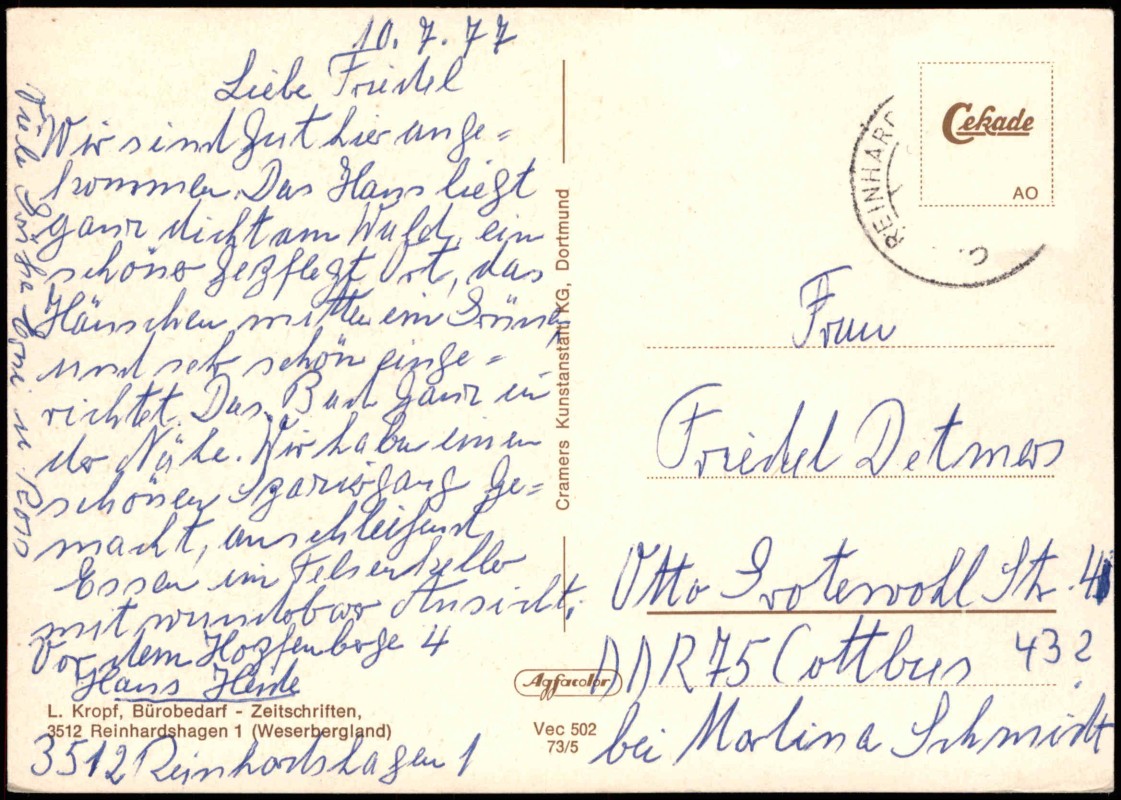 10.7.77
Liebe Friedel
Wir sind gut hier ange=
kommen. Das Haus liegt
ganz dicht am Wald, ein
schöner gepflegt Ort, das
Häuschen mitten im Grünen
und sehr schön einge=
richtet. Das Bad ganz in
der Nähe. Wir haben einen
schönen Spaziergang ge=
macht, anschleißend
Essen im Felsenkeller
mit wunderbarer Ansicht.
Vor dem Hopfenberge 4
Haus Heide
L. Kropf, Bürobedarf - Zeitschriften,
3512 Reinhardshagen 1 (Weserbergland)
3512 Reinhardshagen 1
Viele Grüße
Cramers Kunstanstalt KG, Dortmund
Agfacolor
Vec 502
73/5
Cekade
AO
REINHARD
Frau
Friedel Detmers
Otto Grotewohl Str. 4
DDR 75 Cottbus 432
bei Marlina Schmidt